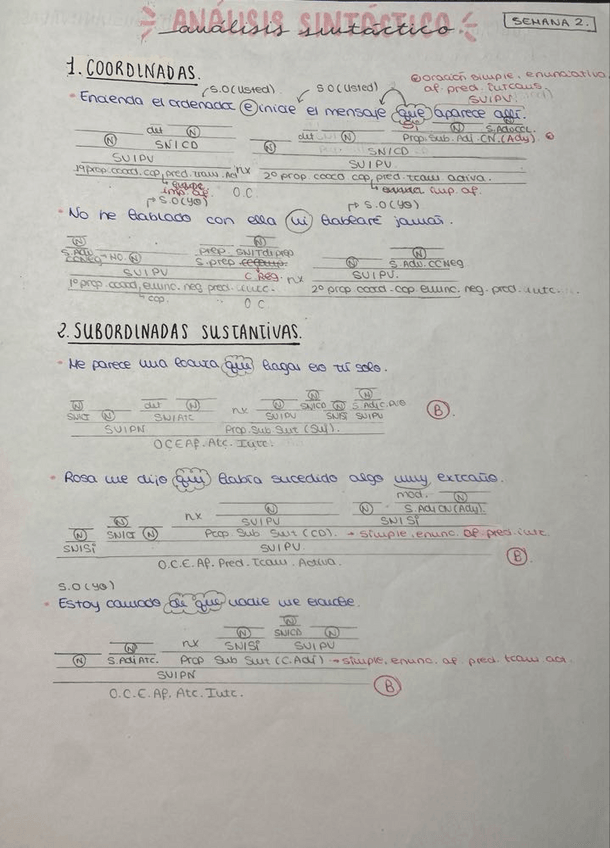 ANÁLISIS SINTÁCTICO
análisis sintáctico.
SEMANA 2.
1. COORDINADAS.
S.O (Usted) S.O (Usted)
oración simple. enunciativa af. pred. intrans.
SUJPV.
Encienda el ordenador e inicie el mensaje que aparece allí.
N det N det N N S.AdvCCL
SNICD Prop. Sub. Adj. CN. (Ady).
SNICD
SUIPV SUIPV
1ª prop. coord. cop. pred. tran. Act nx 2º prop. coord. cop. pred. tran. activa.
imp. af. O.C imp. af.
S.O (yo) S.O (yo)
No he hablado con ella ni hablaré jamás.
N prep. N N N
S.Adv. CCNeg NO. N S.prep C Reg. S. Adv. CCNeg
SUIPV nx SUIPV.
1º prop. coord. enunc. neg. pred. intr. 2º prop. coord. cop. enunc. neg. pred. intr.
cop. O C
2. SUBORDINADAS SUSTANTIVAS.
Me parece una locura que hagas eso tú solo.
N det N nx N N N N
SNICI N SNIAtc SUIPV SNICD SNISI S.Adj C.Pvo
SUIPN Prop. Sub Sust (Suj).
O C E Af. Atc. Intr.
B.
Rosa me dijo que había sucedido algo muy extraño.
mod. N
N N S.Adj CN (Ady).
nx SUIPV SNISI
N SNICI N Prop. Sub Sust (CD). → simple. enunc. af. pred. intr.
SNISI SUIPV.
O.C.E. Af. Pred. Tran. Activa.
B.
S.O (yo)
Estoy cansado de que nadie me escuche.
N N N
N nx SNISI SNICD SUIPV
N S.Adj Atc. Prop Sub Sust (C.Adj) → simple. enunc. af. pred. tran. act.
SUIPN
O.C.E. Af. Atc. Intr.
B